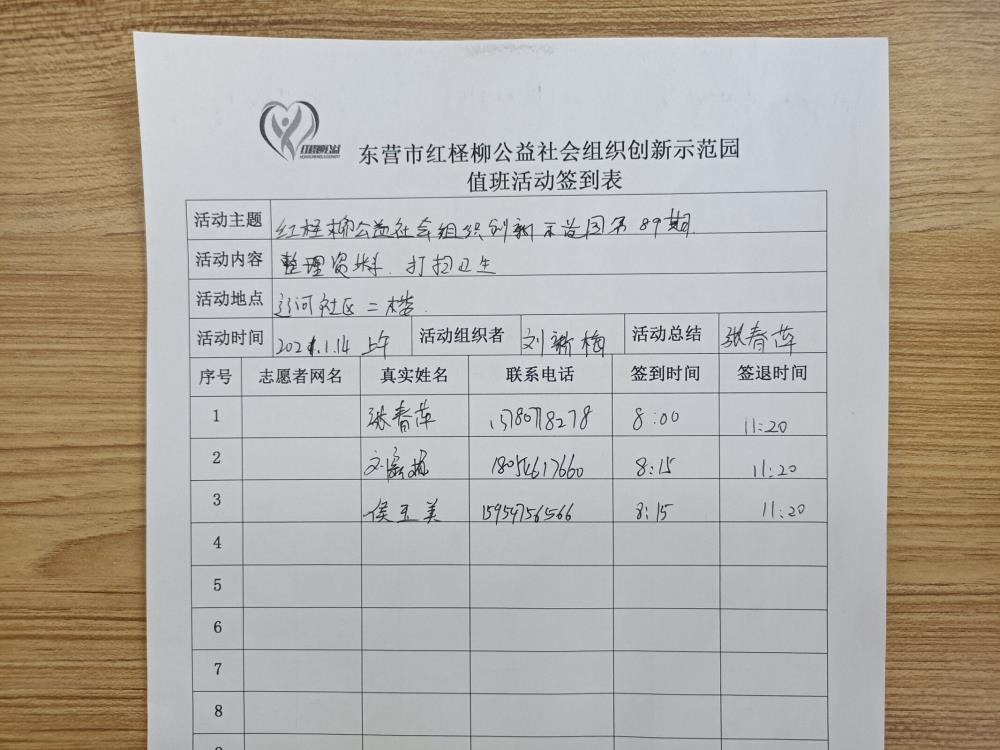 红柽柳公益
东营市红柽柳公益社会组织创新示范园
值班活动签到表
活动主题 红柽柳公益社会组织创新示范园第89期
活动内容 整理资料、打扫卫生
活动地点 辽河社区二楼
活动时间 2021.1.14 上午 活动组织者 刘新梅 活动总结 张春萍
序号 志愿者网名 真实姓名 联系电话 签到时间 签退时间
1 张春萍 8:00 11:20
2 刘 18054617660 8:15 11:20
3 侯玉美 15954756566 8:15 11:20
4
5
6
7
8